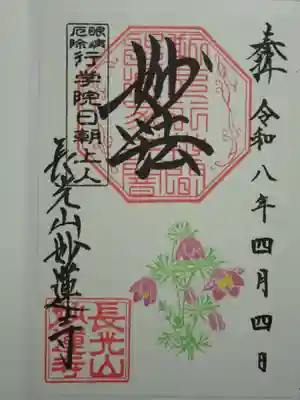 奉拝 令和八年四月四日
妙法
眼病
厄除
行学院日朝上人
長光山妙蓮寺
長光山
妙蓮寺